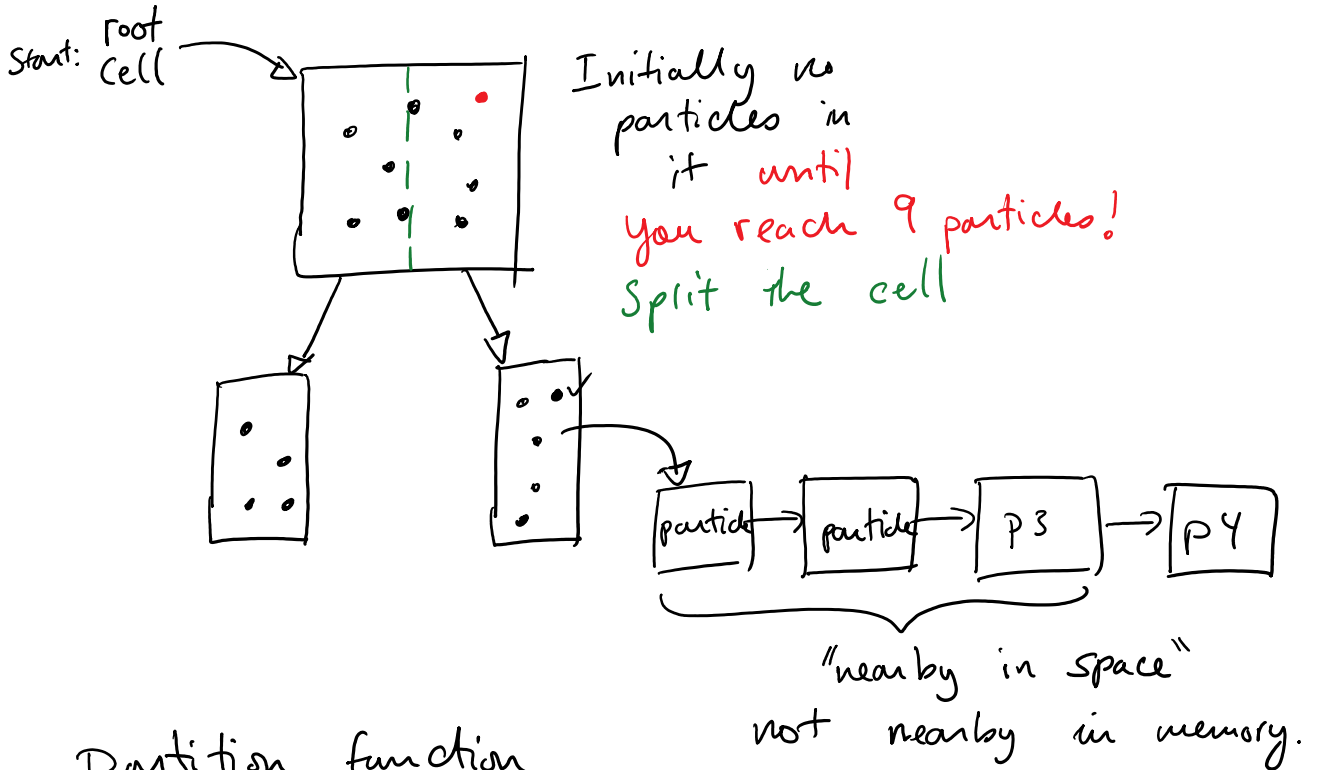 Start: root
cell
Initially no
particles in
it until
you reach 9 particles!
Split the cell
particle
particle
p3
p4
"nearby in space"
not nearby in memory.
Partition function